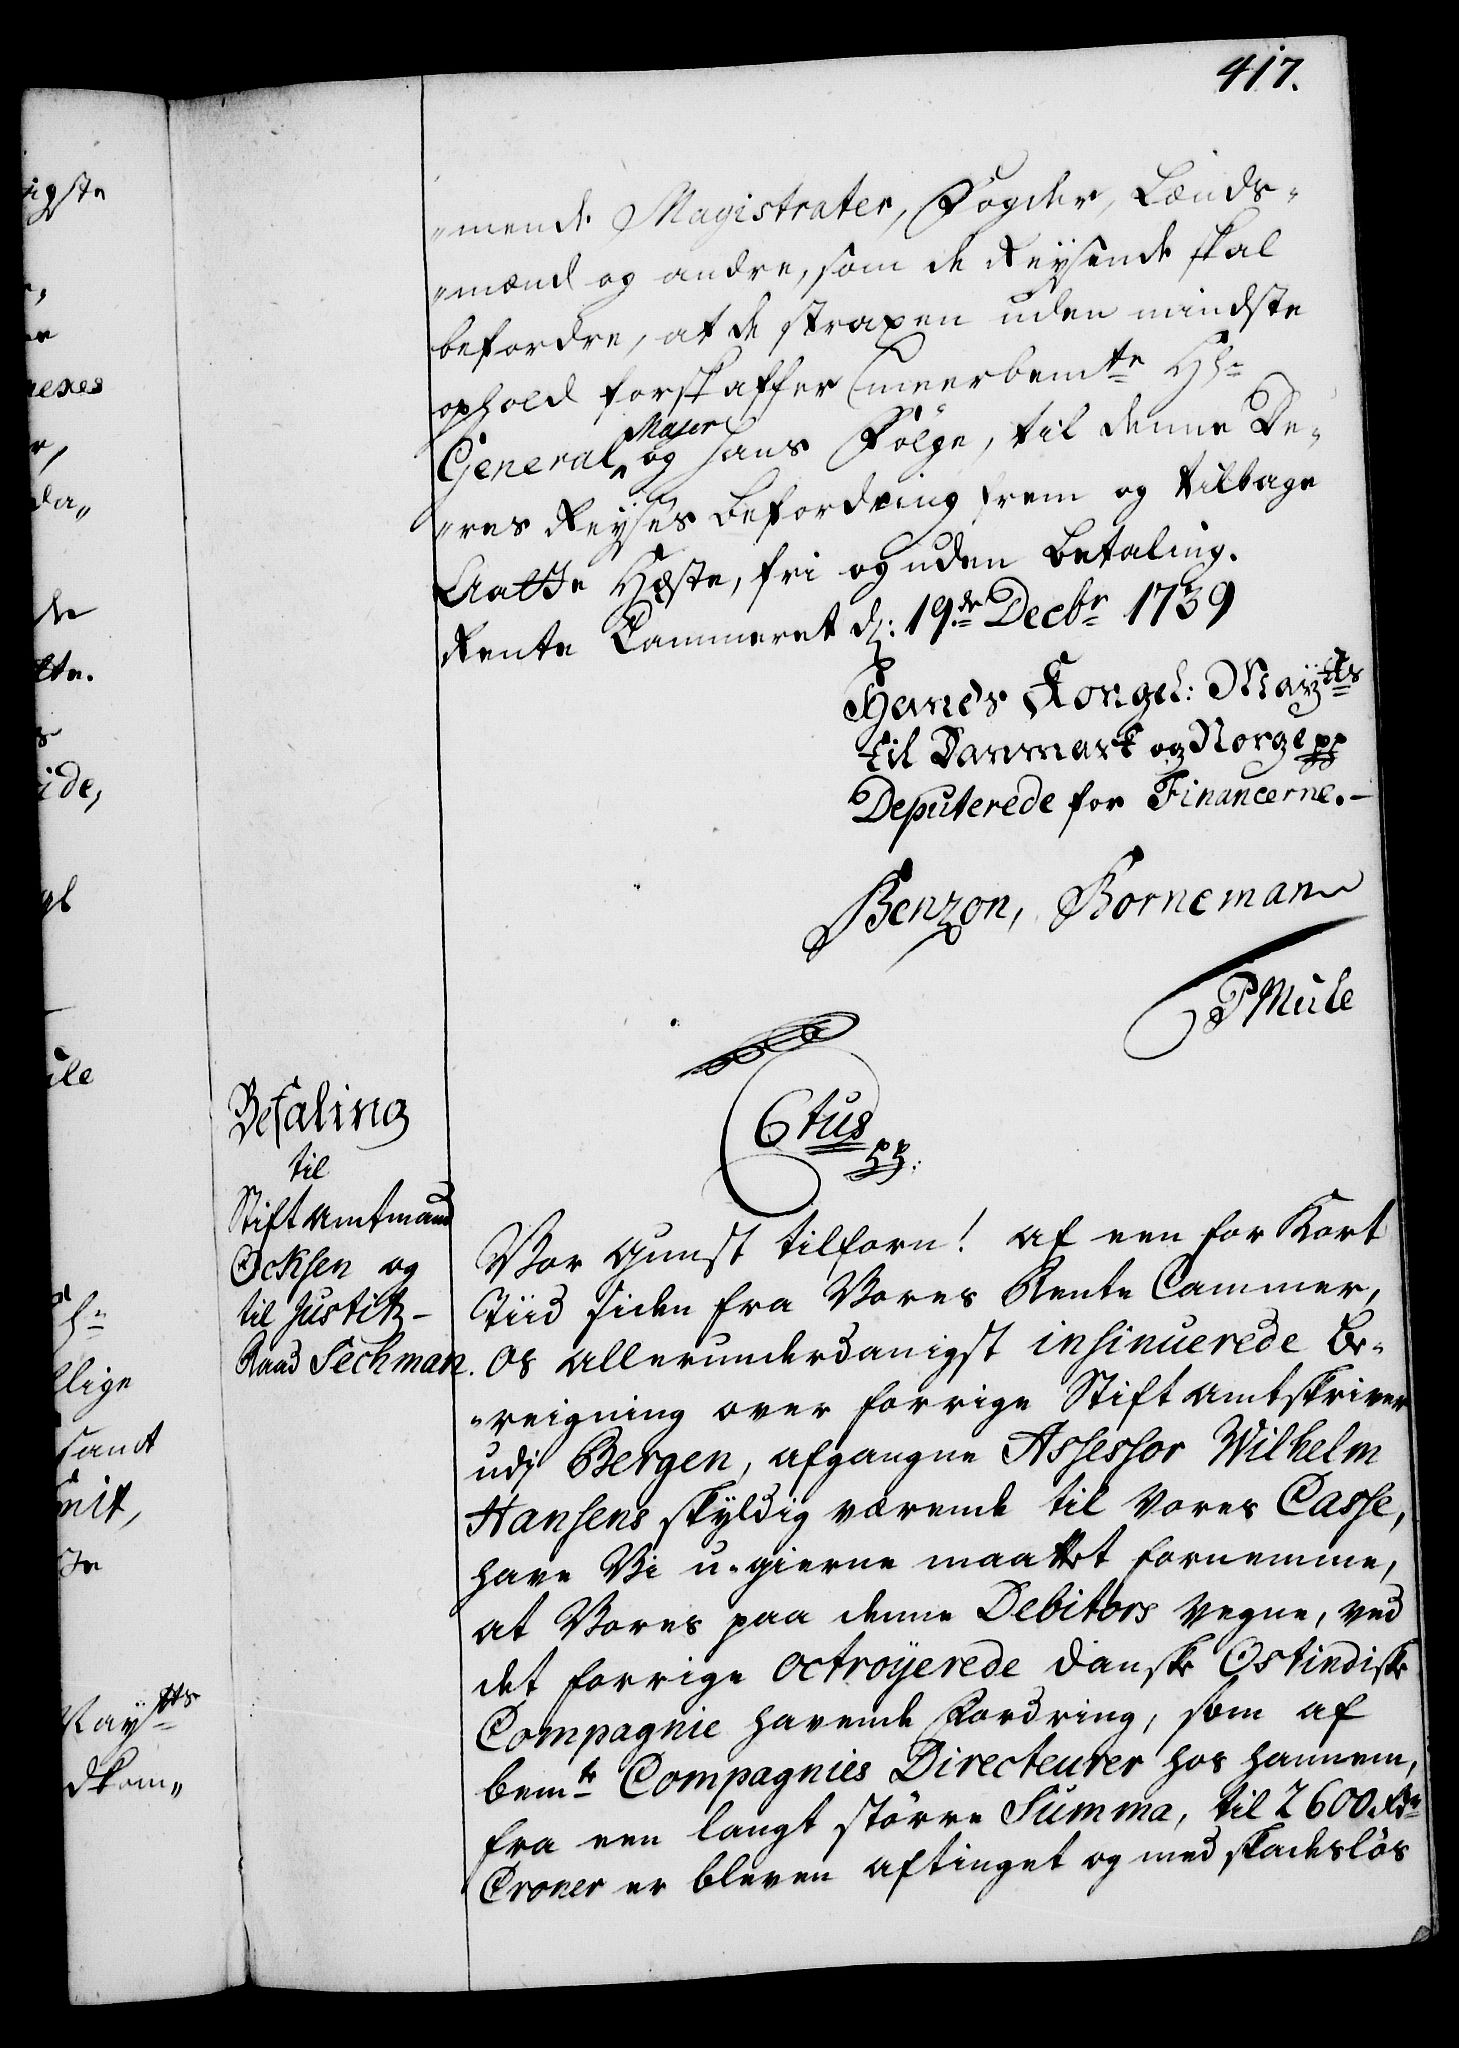 417.
"mende Magistrater, Fogder, Lænds-
"mænd og andre, som de Reysende skal
befordre, at de straxen uden mindste
ophold forskaffer meerbemte Hr
General Major og hans Følge, til denne De-
"res Reyses befordring frem og tilbage
Aatte Hæste, fri og uden betaling.
Rente Cammeret d: 19de Decbr 1739
Hans Kongel: Mayts
til Danmark og Norge pp
Deputerede for Financerne.-
Benzon, Bornemann
P Mule
Befaling
til
Stift Amtmand
Ocksen og
til Justitz-
Raad Sechman.
C 6tus
pp:
Vor gunst tilforn! Af een for kort
Tiid siden fra Vores Rente Cammer,
os allerunderdanigst insinuerede Be-
"reigning over forrige Stift Amtskriver
udj Bergen, afgangne Assessor Wilhelm
Hansens skyldig værende til Vores Casse,
have Vi u-gierne maattet fornemme,
at Vores paa denne Debitors vegne, ved
det forrige octroyerede danske Ostindiske
Compagnie havende Fordring, som af
bemte Compagnies Directeurer hos hannem,
fra een langt større Summa, til 2600 Rdr
Croner er bleven aftinget og med skadesløs
igste
nexes
da"
ide,
ule
llige
samt
Mayts
dkom"